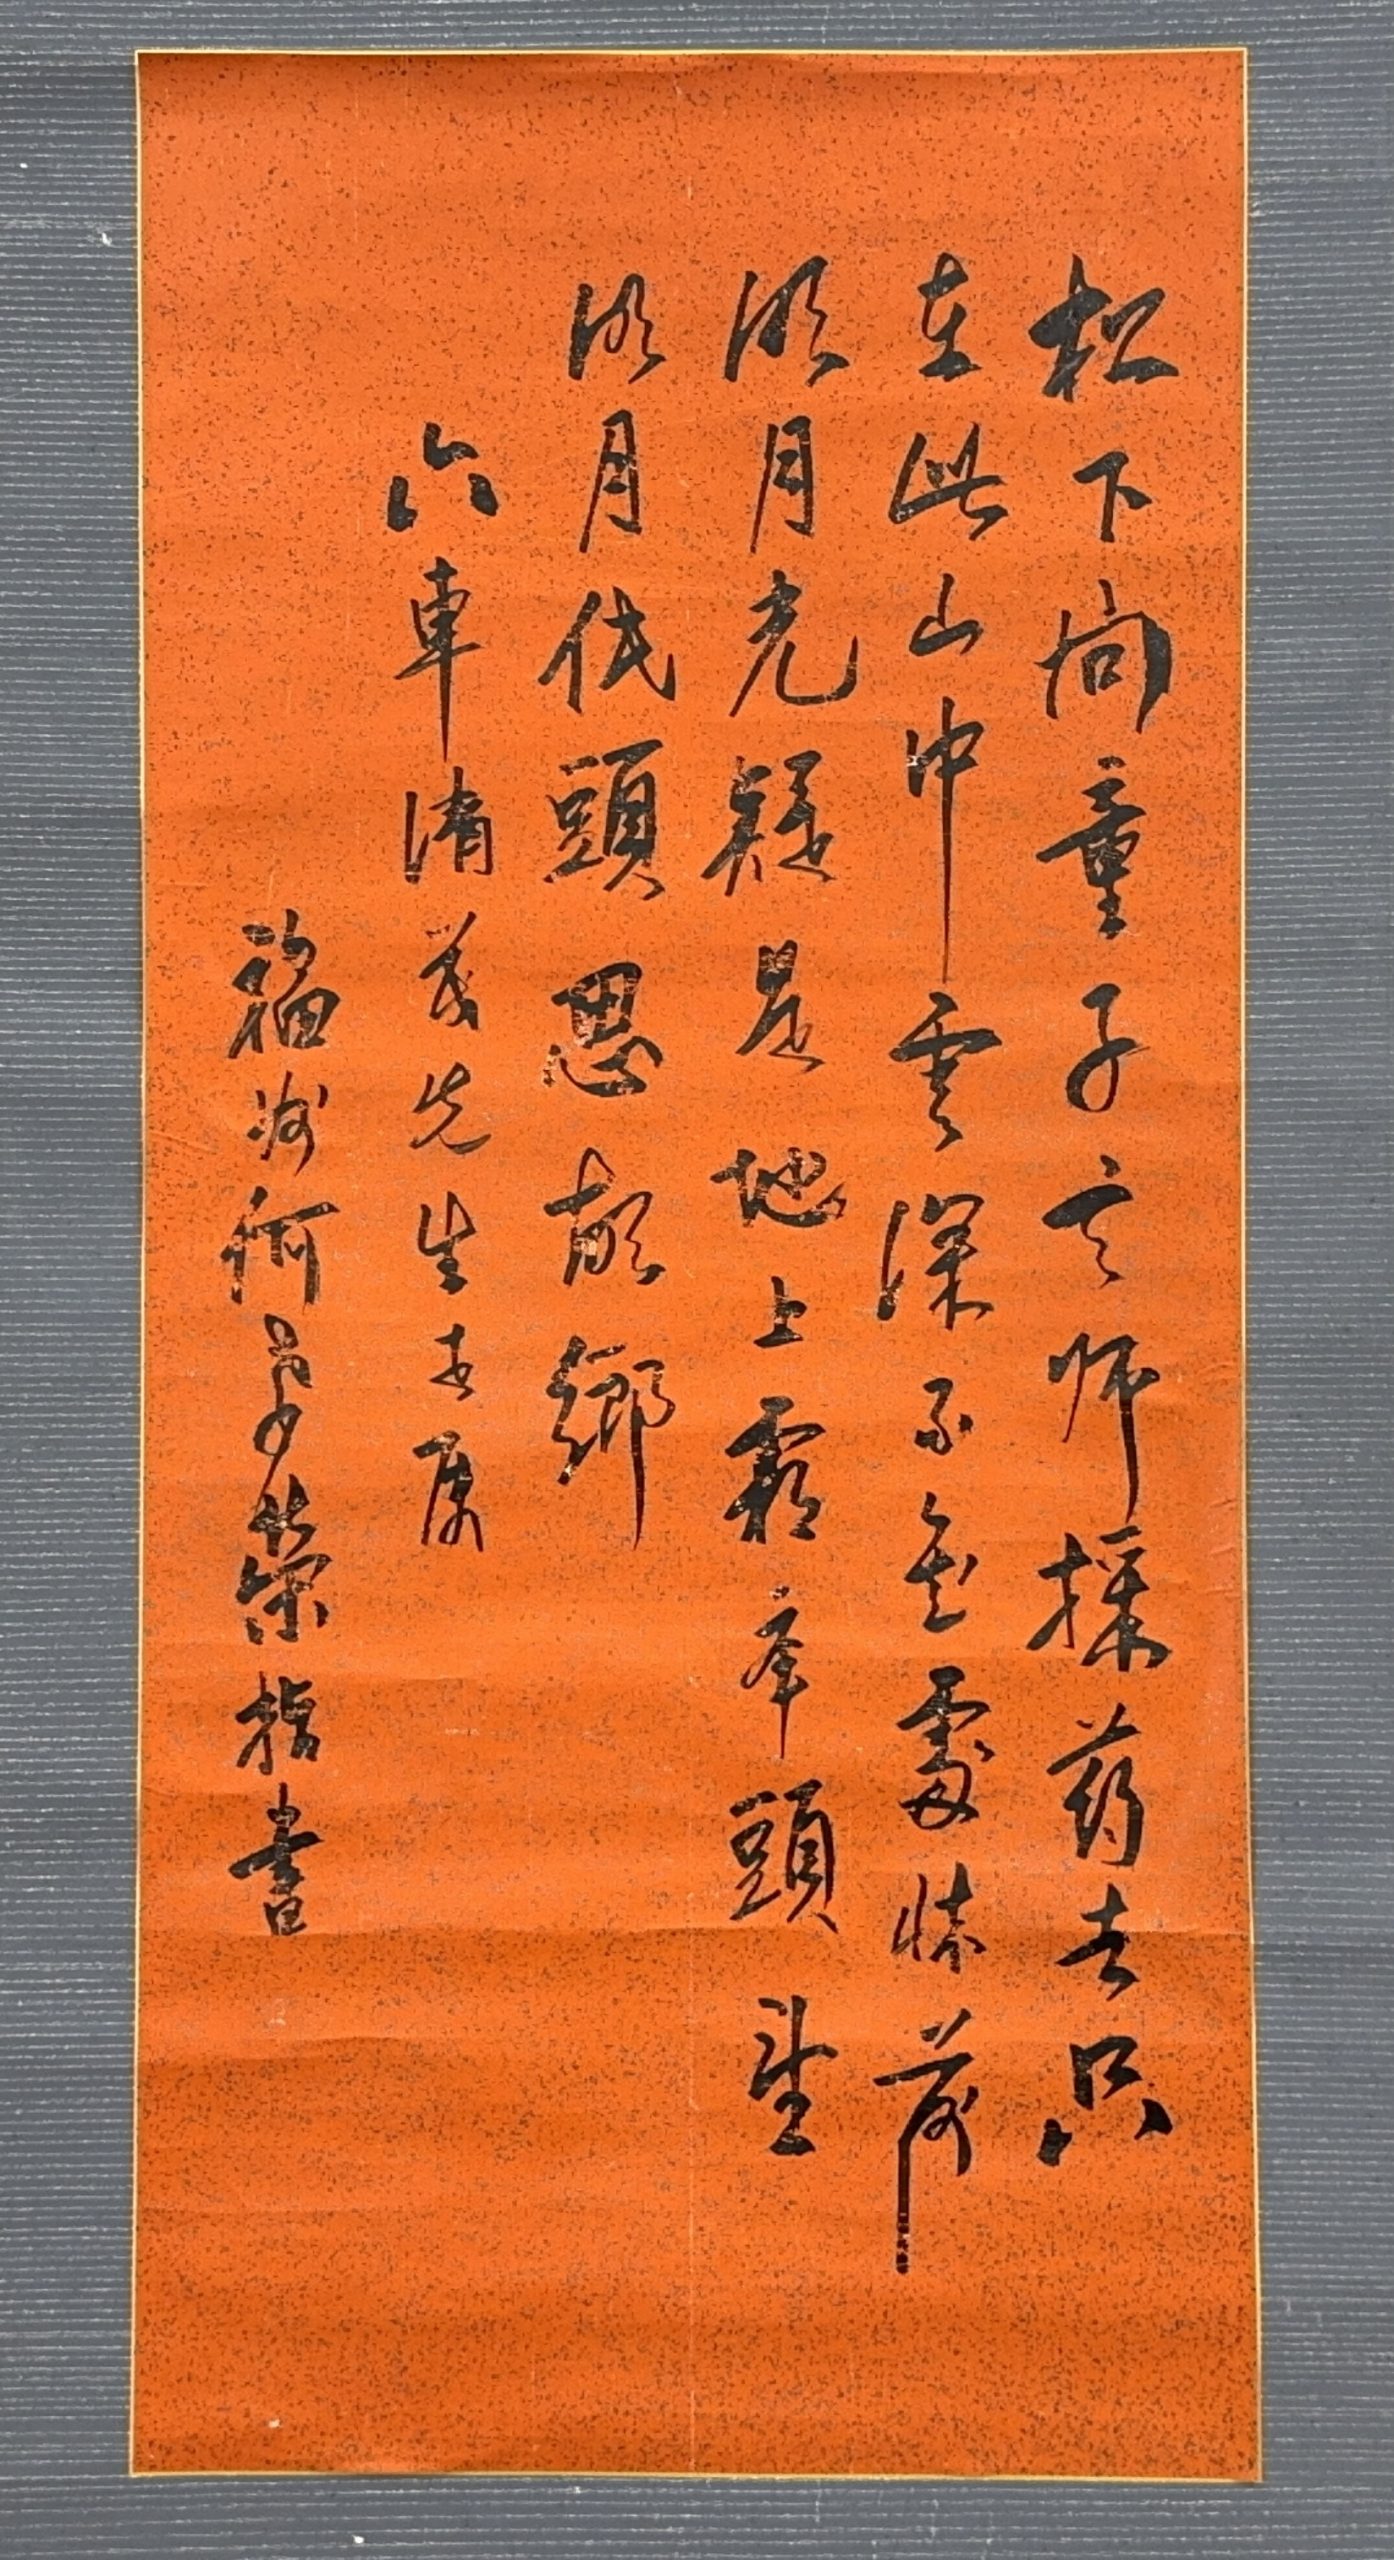 松下問童子言師採药去只
在此山中雲深不知處牀前
明月光疑是地上霜舉頭望
明月低頭思故鄉
六車清茂先生属
福州何榮指書